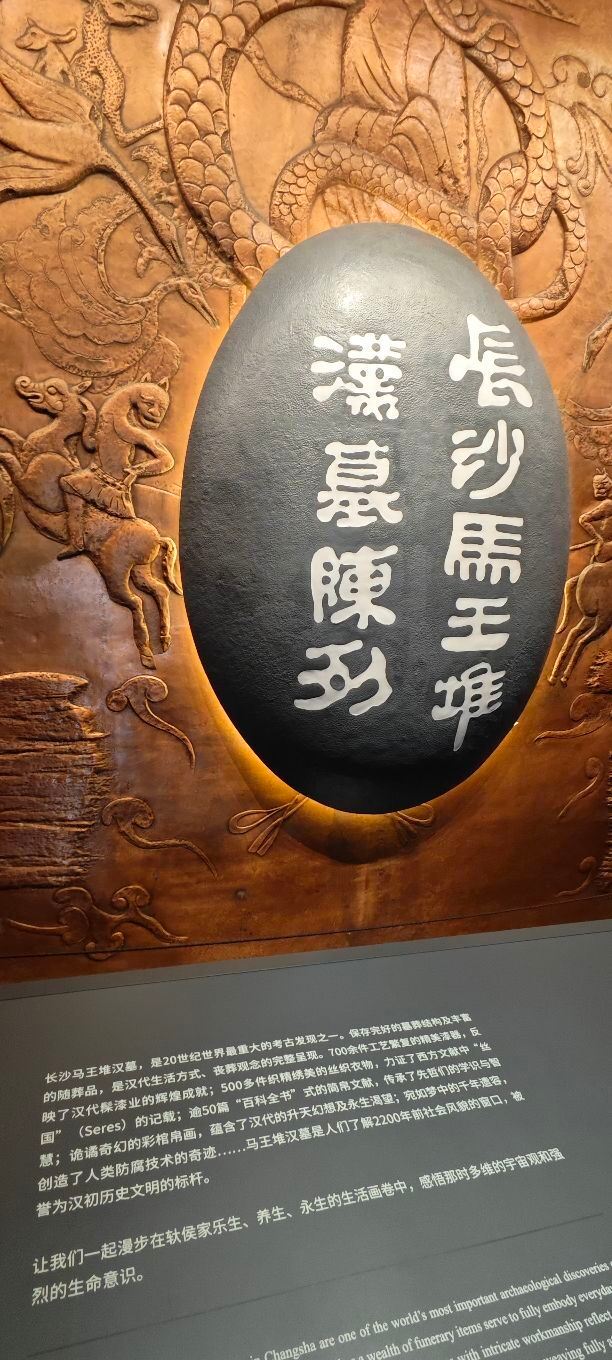 長沙馬王堆
漢墓陳列
长沙马王堆汉墓，是20世纪世界最重大的考古发现之一。保存完好的墓葬结构及丰富
的随葬品，是汉代生活方式、丧葬观念的完整呈现。700余件工艺繁复的精美漆器，反
映了汉代髹漆业的辉煌成就；500多件织精绣美的丝织衣物，力证了西方文献中“丝
国”（Seres）的记载；逾50篇“百科全书”式的简帛文献，传承了先哲们的学识与智
慧；诡谲奇幻的彩棺帛画，蕴含了汉代的升天幻想及永生渴望；宛如梦中的千年遗容，
创造了人类防腐技术的奇迹……马王堆汉墓是人们了解2200年前社会风貌的窗口，被
誉为汉初历史文明的标杆。
让我们一起漫步在轪侯家乐生、养生、永生的生活画卷中，感悟那时多维的宇宙观和强
烈的生命意识。
in Changsha are one of the world's most important archaeological discoveries
a wealth of funerary items serve to fully embody everyday
with intricate workmanship reflec
weaving fully